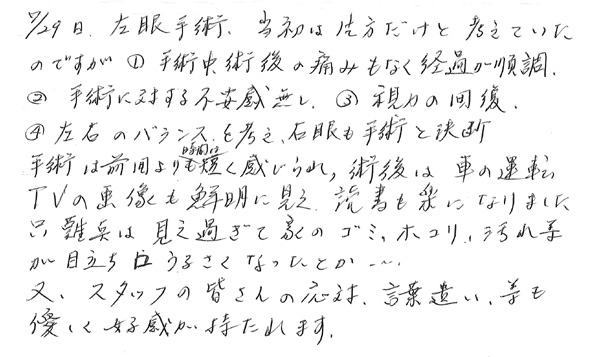 7/29日、左眼手術、当初は片方だけと考えていた
のですが ① 手術中、術後の痛みもなく経過が順調、
② 手術に対する不安感無し、③ 視力の回復、
④ 左右のバランスを考え、右眼も手術と決断
手術は前回よりも時間は短く感じられ、術後は車の運転
TVの画像も鮮明に見え、読書も楽になりました
只難点は見え過ぎて家のゴミ、ホコリ、汚れ等
が目立ち口うるさくなったとか…。
又、スタッフの皆さんの応対、言葉遣い、等も
優しく好感が持たれます。